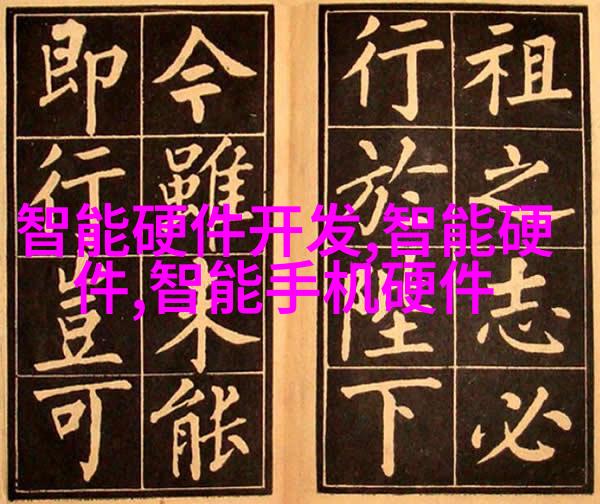 祖之志必
行於陛下
今雖未能
即行豈可
智能硬件开发,智能硬
件,智能手机硬件